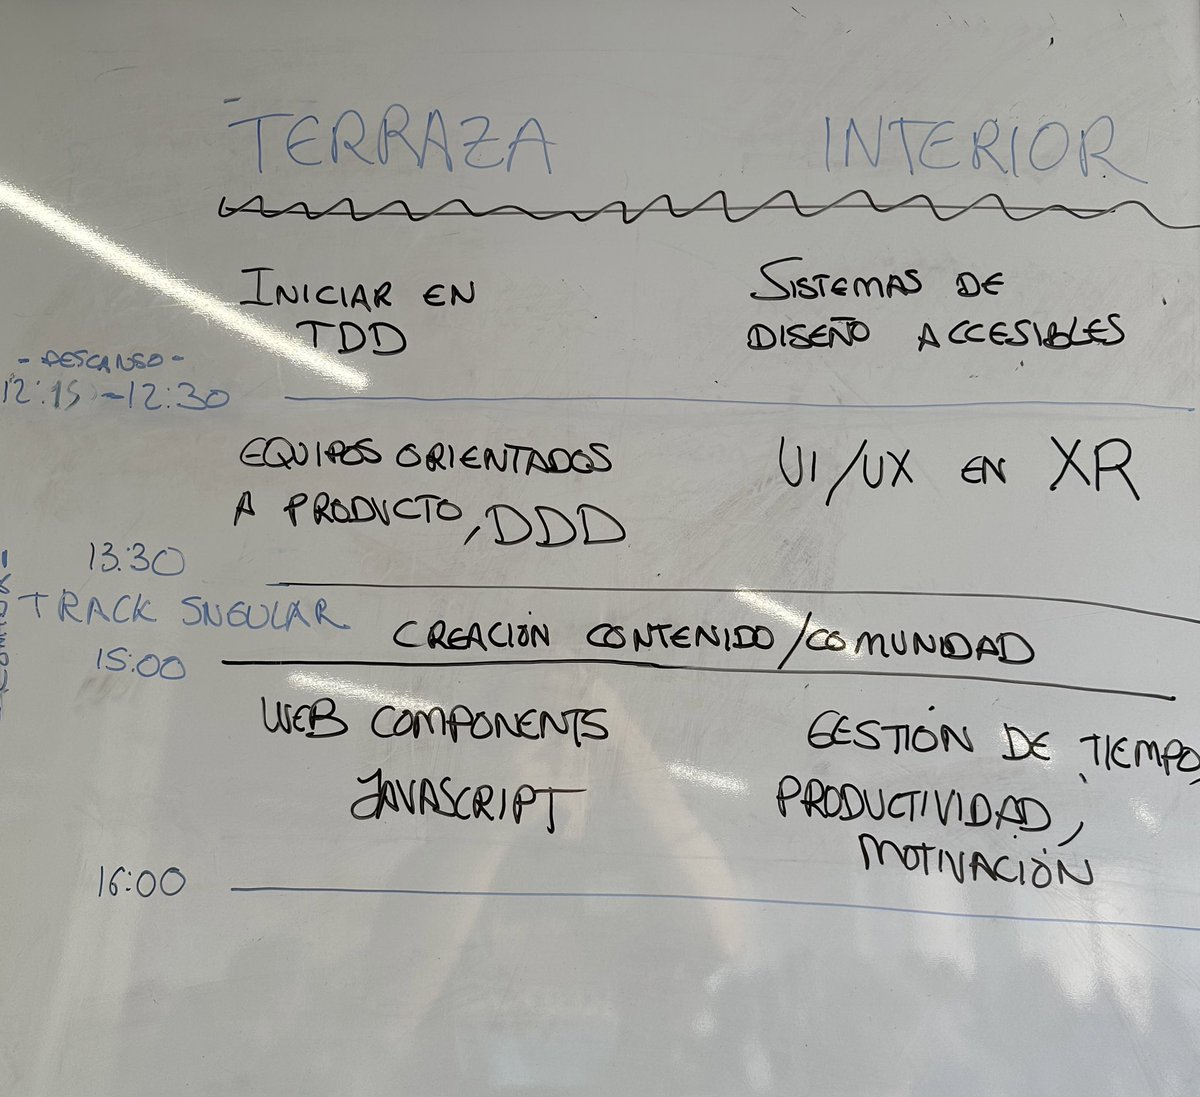 TERRAZA INTERIOR
INICIAR EN
TDD
SISTEMAS DE
DISEÑO ACCESIBLES
- DESCANSO -
12:15 - 12:30
EQUIPOS ORIENTADOS
A PRODUCTO, DDD
UI/UX EN XR
13:30
COMIDA
TRACK SNGULAR
CREACIÓN CONTENIDO/COMUNIDAD
15:00
WEB COMPONENTS
JAVASCRIPT
GESTIÓN DE TIEMPO,
PRODUCTIVIDAD,
MOTIVACIÓN
16:00